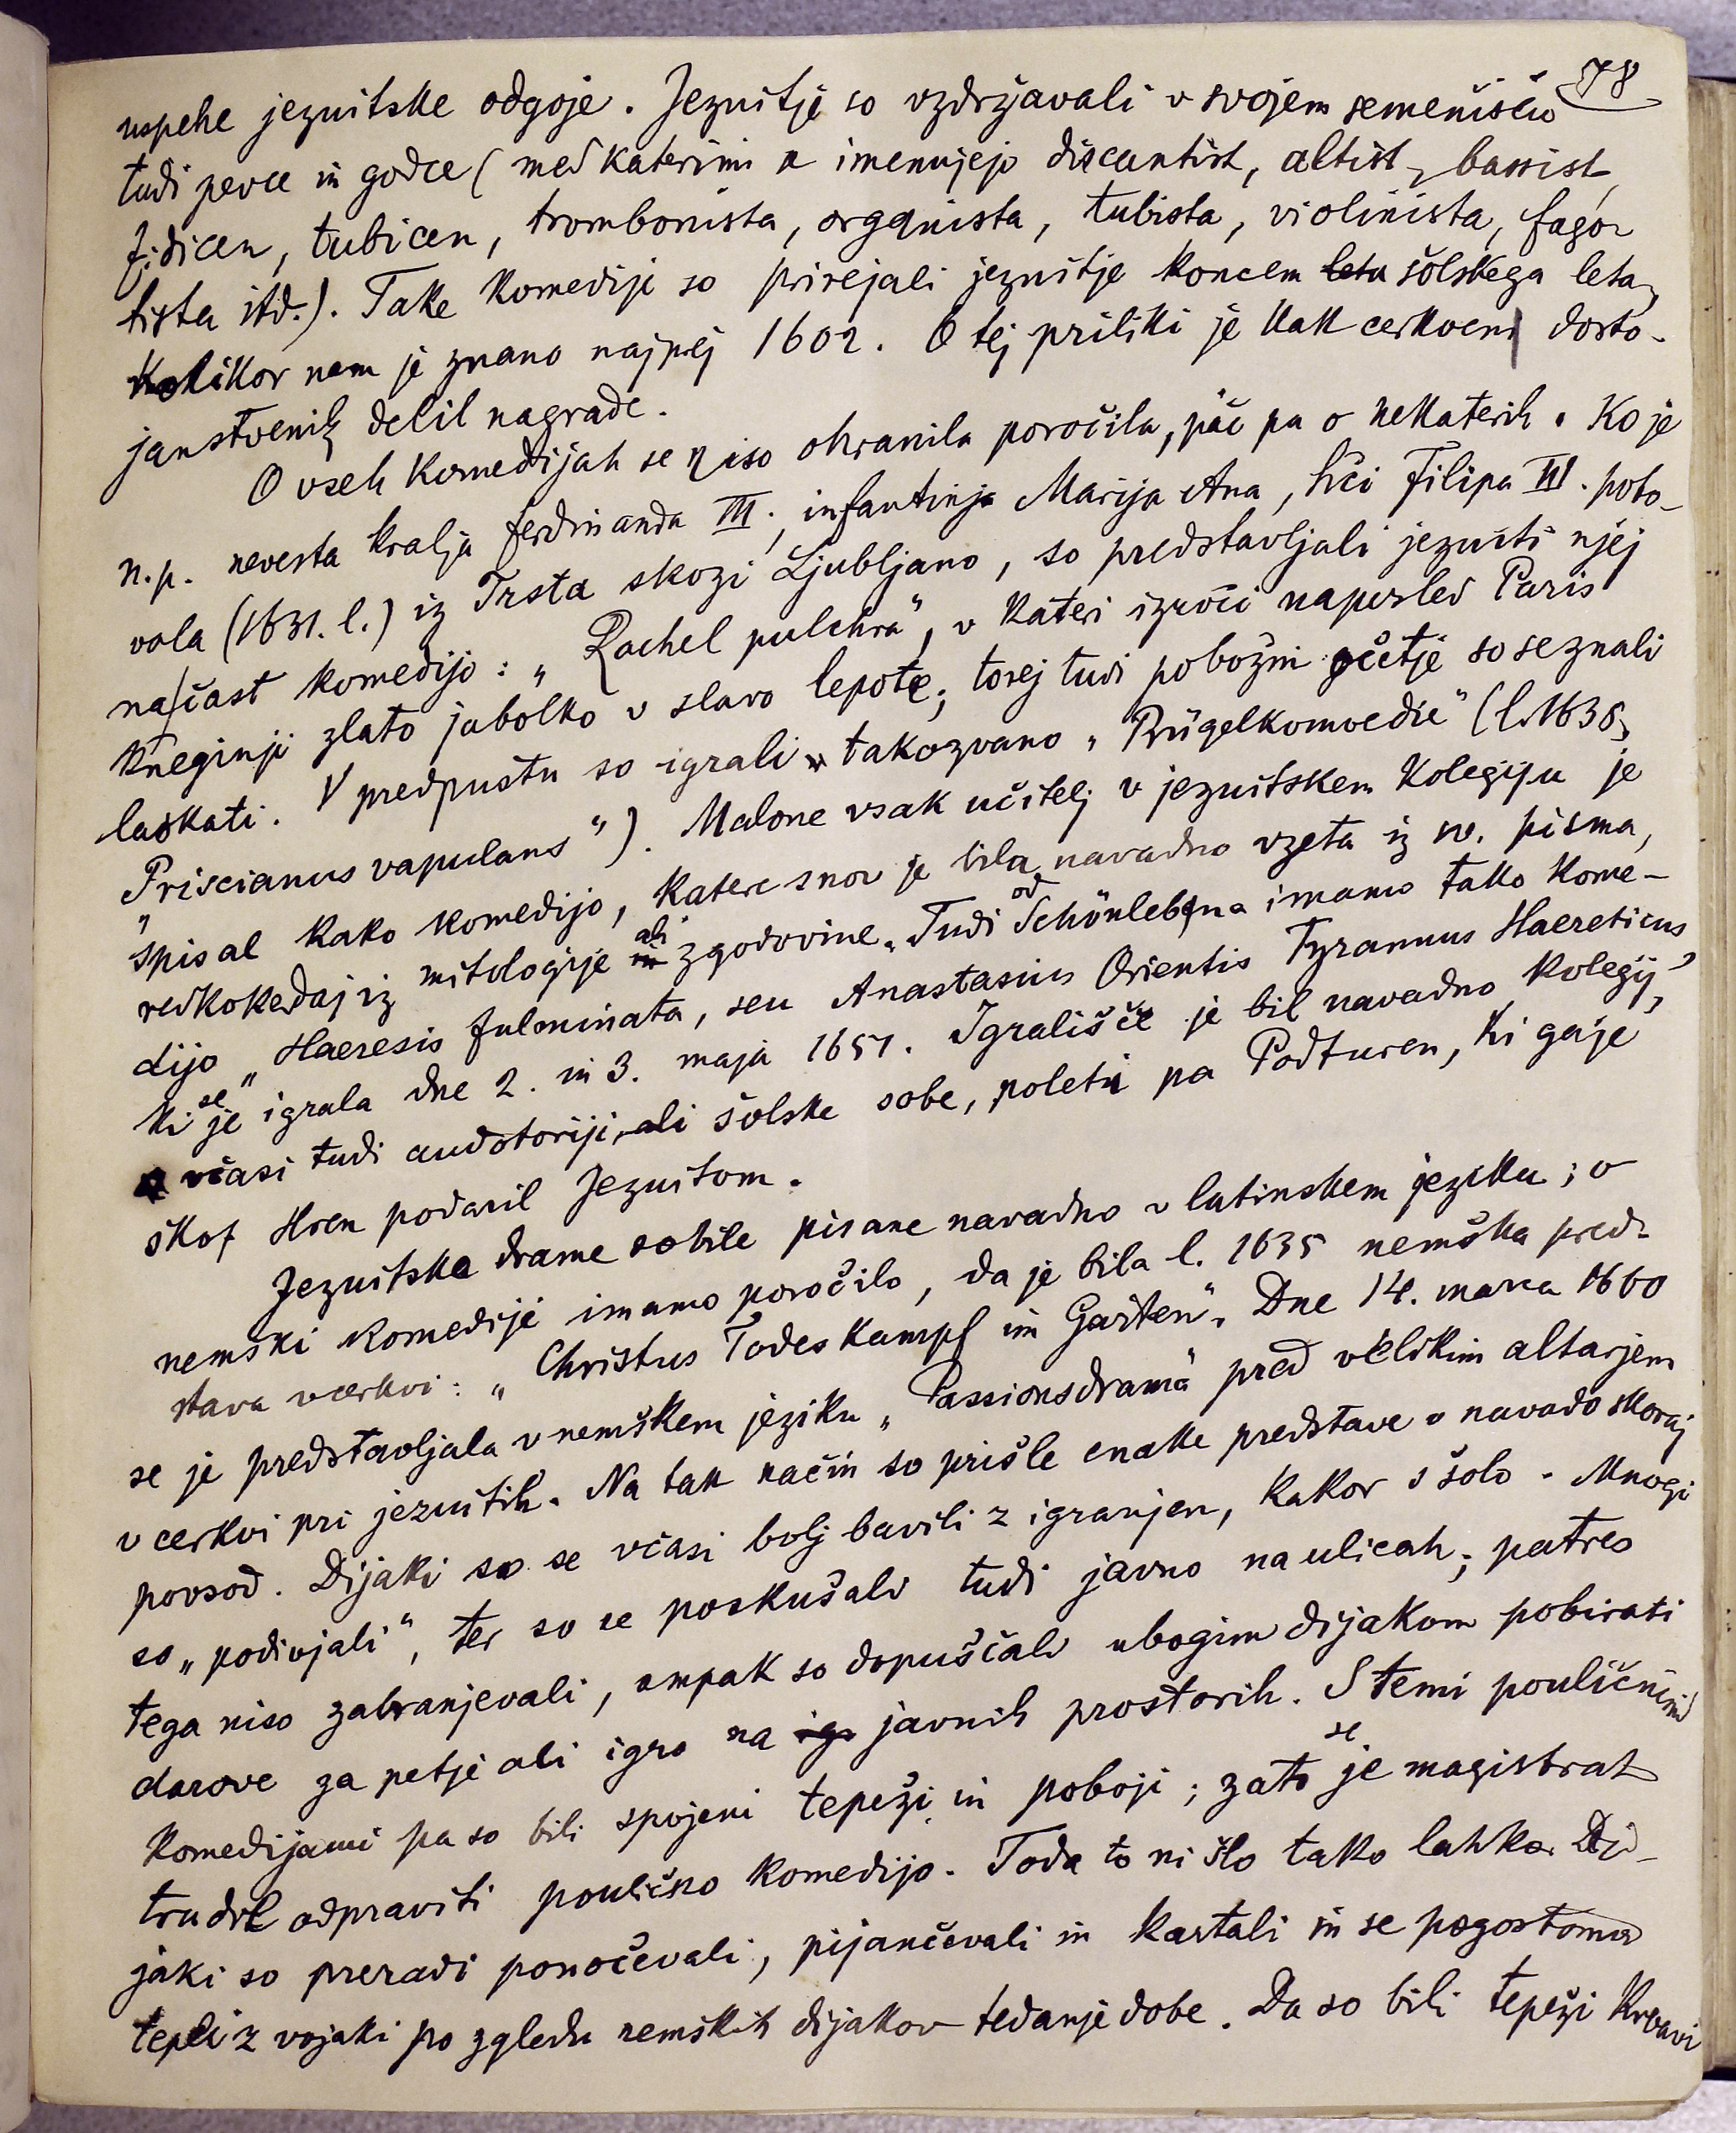 78
uspehe jezuitske odgoje. Jezuitje so vzdržavali v svojem semenišču
tudi pevce in godce (med katerimi se imenujejo discantist, altist, bassist,
fidicen, tubicen, trombonista, organista, tubista, violinista, fago-
tista itd.). Take komedije so prirejali jezuitje koncem leta šolskega leta,
kolikor nam je znano najprej 1602. O tej priliki je kak cerkveni dosto-
janstvenik delil nagrade.
O vseh komedijah se niso ohranila poročila, pač pa o nekaterih. Ko je
n.pr. nevesta kralja Ferdinanda III., infantinja Marija Ana, hči Filipa III. poto-
vala (1631. l.) iz Trsta skozi Ljubljano, so predstavljali jezuiti njej
na čast komedijo: „Rachel pulchra“, v kateri izroči naposled Paris
kneginji zlato jabolko v slavo lepote; torej tudi pobožni očetje so se znali
laskati. V predpustu so igrali takozvano „Prügelkomoedie“ (l. 1638,
„Priscianus vapulans“). Malone vsak učitelj v jezuitskem kolegiju je
spisal kako komedijo, katere snov je bila navadno vzeta iz sv. pisma,
redkokedaj iz mitologije in ali zgodovine. Tudi od Schönlebna imamo tako kome-
dijo „Haeresis fulminata, seu Anastasius Orientis Tyrannus Haereticus“,
ki se je igrala dne 2. in 3. maja 1651. Igrališče je bil navadno kolegij,
včasi tudi audotoriji, ali šolske sobe, poleti pa Podturen, ki ga je
škof Hren podaril Jezuitom.
Jezuitske drame so bile pisane navadno v latinskem jeziku; o
nemski komediji imamo poročilo, da je bila l. 1635 nemška pred-
stava v cerkvi: „Christus Todeskampf im Garten“. Dne 14. marca 1660
se je predstavljala v nemškem jeziku „Passionsdrama“ pred velikim altarjem
v cerkvi pri jezuitih. Na tak način so prišle enake predstave v navado skoraj
povsod. Dijaki so se včasi bolj bavili z igranjem, kakor s šolo. Mnogi
so „podivjali“, ter so se poskušali tudi javno na ulicah; patres
tega niso zabranjevali, ampak so dopuščali ubogim dijakom pobirati
darove za petje ali igro na ig javnih prostorih. S temi pouličnimi
komedijami pa so bili spojeni tepeži in poboji; zato se je magistrat
trudil odpraviti poulično komedijo. Toda to ni šlo tako lahko. Di-
jaki so preradi ponočevali, pijančevali in kartali in se pogostoma
tepli z vojaki po zgledu nemških dijakov tedanje dobe. Da so bili tepeži krvavi